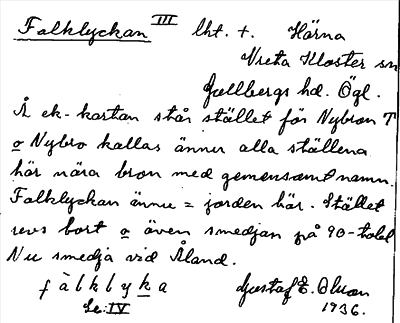 Falklyckan III lht. t. Hörna
Vreta Kloster sn
Gullbergs hd. Ögl.
Å ek-kartan står stället för Nybron T
o Nybro kallas ännu alla ställena
här nära bron med gemensamt namn.
Falklyckan ännu = jorden här. Stället
revs bort o även smedjan på 90-talet
Nu smedja vid Åland.
fàlklyka Gustaf E. Olson
Se: IV 1936.